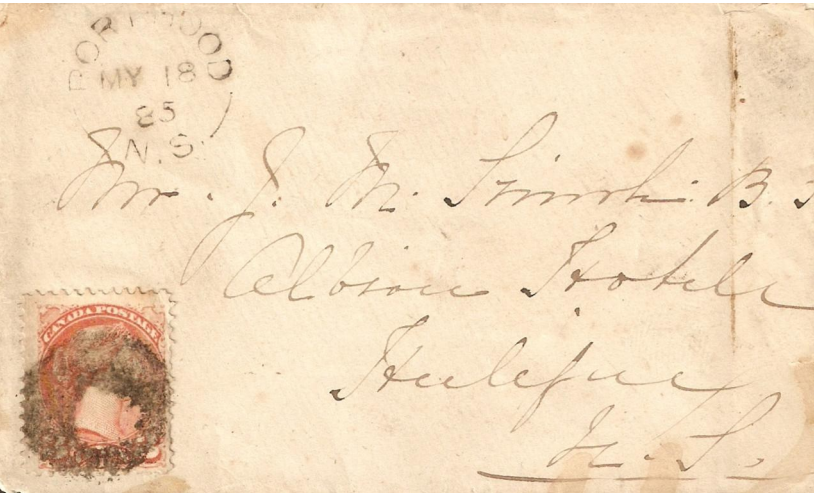 PORT HOOD
MY 18
85
N.S.
Mr. J. M. B.
Albion Hotel
Halifax
N. S.
CANADA POSTAGE